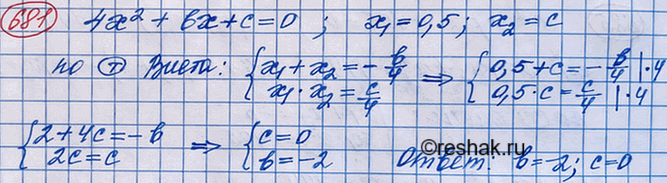 681 4x² + bx + c = 0 ; x₁ = 0,5 ; x₂ = c
по Т Виета: { x₁ + x₂ = -b/4 ⇒ { 0,5 + c = -b/4 |·4
x₁ · x₂ = c/4 0,5 · c = c/4 |·4
{ 2 + 4c = -b ⇒ { c = 0
2c = c b = -2 Ответ: b = -2; c = 0
©reshak.ru